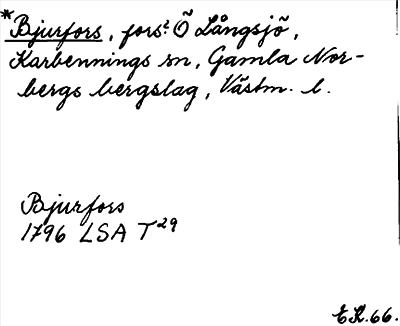 *Bjurfors, fors? Ö Långsjö,
Karbennings sn, Gamla Nor-
bergs bergslag, Västm. l.
Bjurfors
1796 LSA T29
E.K.66.